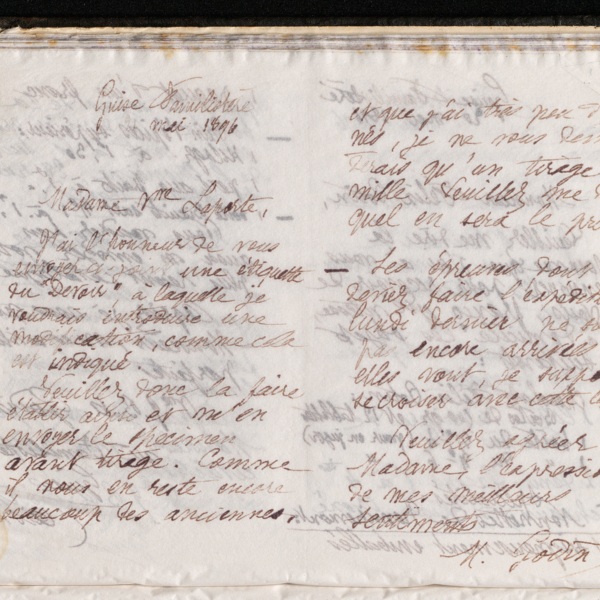 Guise Familistère
mai 1896
Madame Vve Laporte,
J'ai l'honneur de vous
envoyer ci-joint une étiquette
du "Devoir" à laquelle je
voudrais introduire une
modification, comme cela
est indiqué.
Veuillez donc la faire
établir ainsi et m'en
envoyer le spécimen
avant tirage. Comme
il nous en reste encore
beaucoup des anciennes
et que j'ai très peu d
nés, je ne vous dem
derais qu'un tirage
mille. Veuillez me
quel en sera le pri
— Les épreuves dont
deviez faire l'expédit
lundi dernier ne so
pas encore arrivées
elles vont, je suppo
se croiser avec cette le
Veuillez agréer
Madame, l'expressio
de mes meilleurs
sentiments
M. Godin